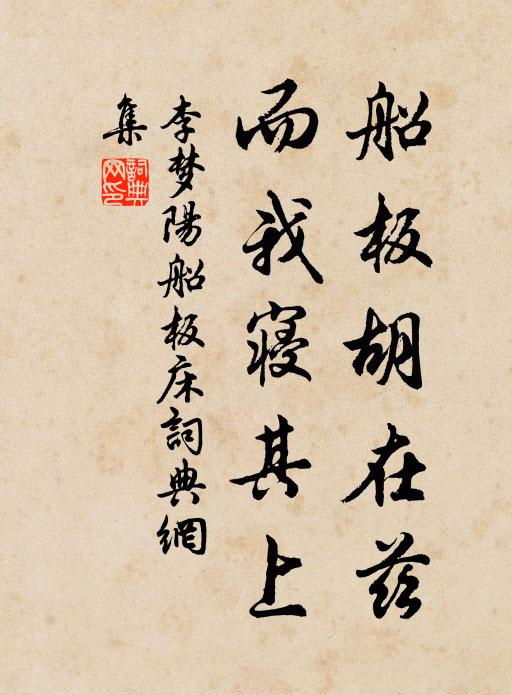 船板胡在兹
而我寝其上
李梦陽船板床詞典網
集
詞典网印